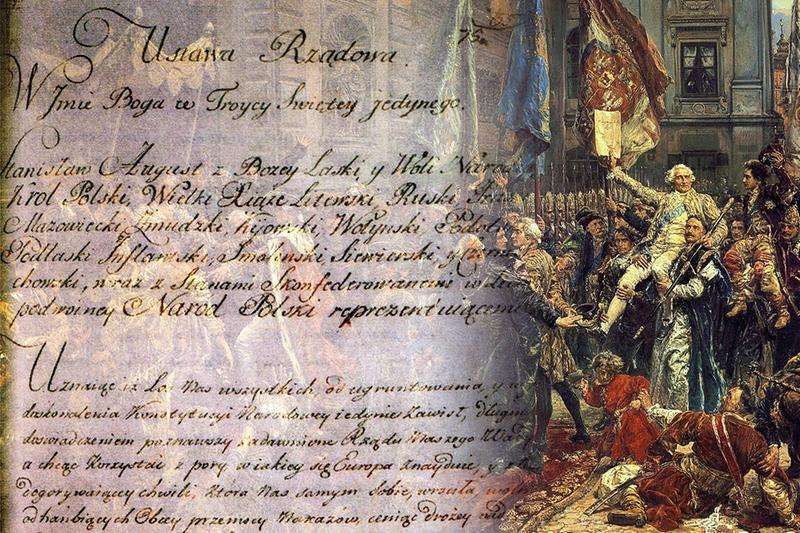 75.
Ustawa Rządowa.
W Jmie Boga w Troycy Swiętey jedynego.
Stanisław August z Bożey Łaski y Woli Narodu
Krol Polski, Wielki Xiąże Litewski, Ruski
Mazowiecki, Żmudzki, Kijowski, Wołynski, Podol
Podlaski Inflantski, Smolenski Siewierski, y Czernie
chowski, wraz z Stanami Skonfederowanemi w licz
podwoiney Narod Polski reprezentuiącemi
Uznaiąc iż los nas wszystkich, od ugruntowania, y wy
doskonalenia Konstytucyi Narodowey iedynie zawisł, długim
doswiadczeniem poznawszy zadawnione Rządu Naszego Wady
a chcąc korzystać z pory w iakiey się Europa znayduie, y z tey
dogorywaiącey chwili, która nas samym Sobie, wrociła, wolni
od hańbiących Obcey przemocy Nakazów, ceniąc drożey nad